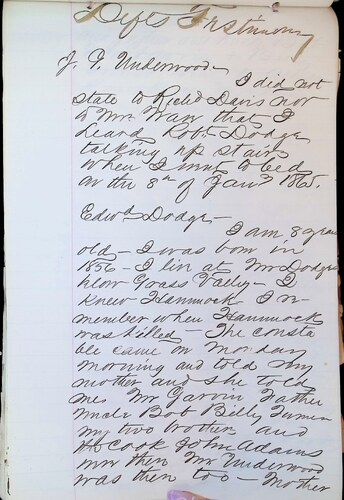 Defts Testimony
J. F. Underwood -
I did not
state to Richd Davis nor
to Mr Way that I
heard Robt Dodge
talking up stairs
when I went to bed
on the 8th of Jany 1865.
Edwd Dodge -
I am 8 years
old - I was born in
1856 - I live at Mr Dodges
below Grass Valley - I
knew Hammock I re
member when Hammock
was killed - The consta
ble came on Monday
morning and told my
mother and she told
me Mr Garvin Father
Uncle Bob Billy
my two brother and
cook John Adams
Mr Underwood
was then too - Mother